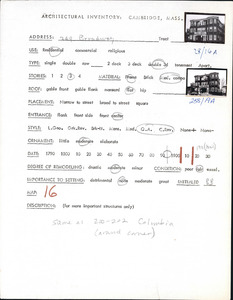 ARCHITECTURAL INVENTORY: CAMBRIDGE, MASS.
ADDRESS: Broadway
28/14A
USE: residential commercial religious
TYPE: single double row 2 deck 3 deck double 3d tenement Apart.
STORIES: 1 2 3 4 MATERIAL: frame brick
ROOF: gable front gable flank mansard flat hip
28/19A
PLACEMENT: Narrow to street broad to street square
ENTRANCE: flank front side front center
STYLE:
ORNAMENT: little moderate elaborate
DATE: 1790 1800 10 20 30 40 50 60 70 80 90 1900 10 20 30
DEGREE OF REMODELING: drastic moderate minor CONDITION: poor fair excel.
IMPORTANCE TO SETTING: detrimental none moderate great INITIALED
MAP: 16
DESCRIPTION: (For more important structures only)
same as 200-202 Columbia
(around corner)